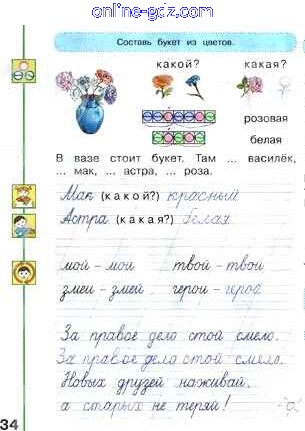 online-gdz.com
Составь букет из цветов.
какой? какая?
розовая
белая
В вазе стоит букет. Там ... василёк,
... мак, ... астра, ... роза.
Мак (какой?) красный
Астра (какая?) белая
мой – мои твой – твои
змеи – змей герои – герой
За правое дело стой смело.
За правое дело стой смело.
Новых друзей наживай,
а старых не теряй!
34